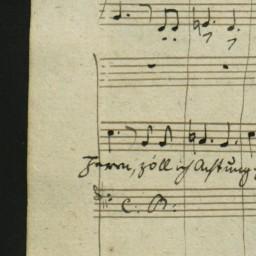 Herrn, zoll ich Achtung,
C. B: